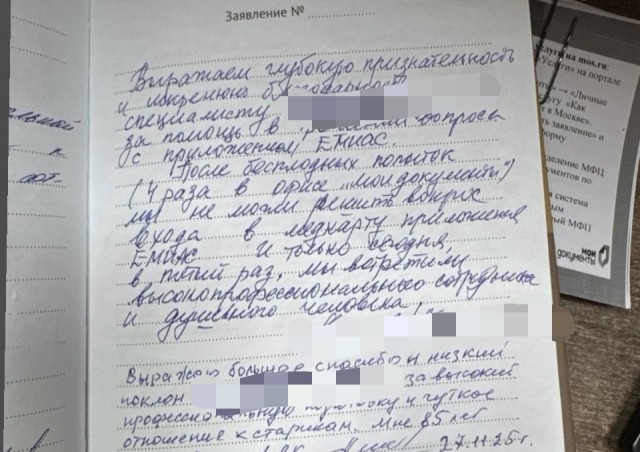 Заявление № ....................
Выражаем глубокую признательность
и искреннюю благодарность
специалисту
за помощь в решении вопроса
с приложением ЕМИАС.
После бесплодных попыток
(4 раза в офисе „мои документы")
мы не могли решить вопрос
входа в медкарту приложения
ЕМИАС и только сегодня,
в пятый раз, мы встретили
высокопрофессионального сотрудника
и душевного человека!
Выражаю большое спасибо и низкий
поклон за высокий
и чуткое
отношение к старикам. Мне 85 лет
27.11.25г.
услуги на mos.ru:
на портале
→ «Личные
«Как
в Москве».
заявление» и
МФЦ
по
система
МФЦ
мои
документы